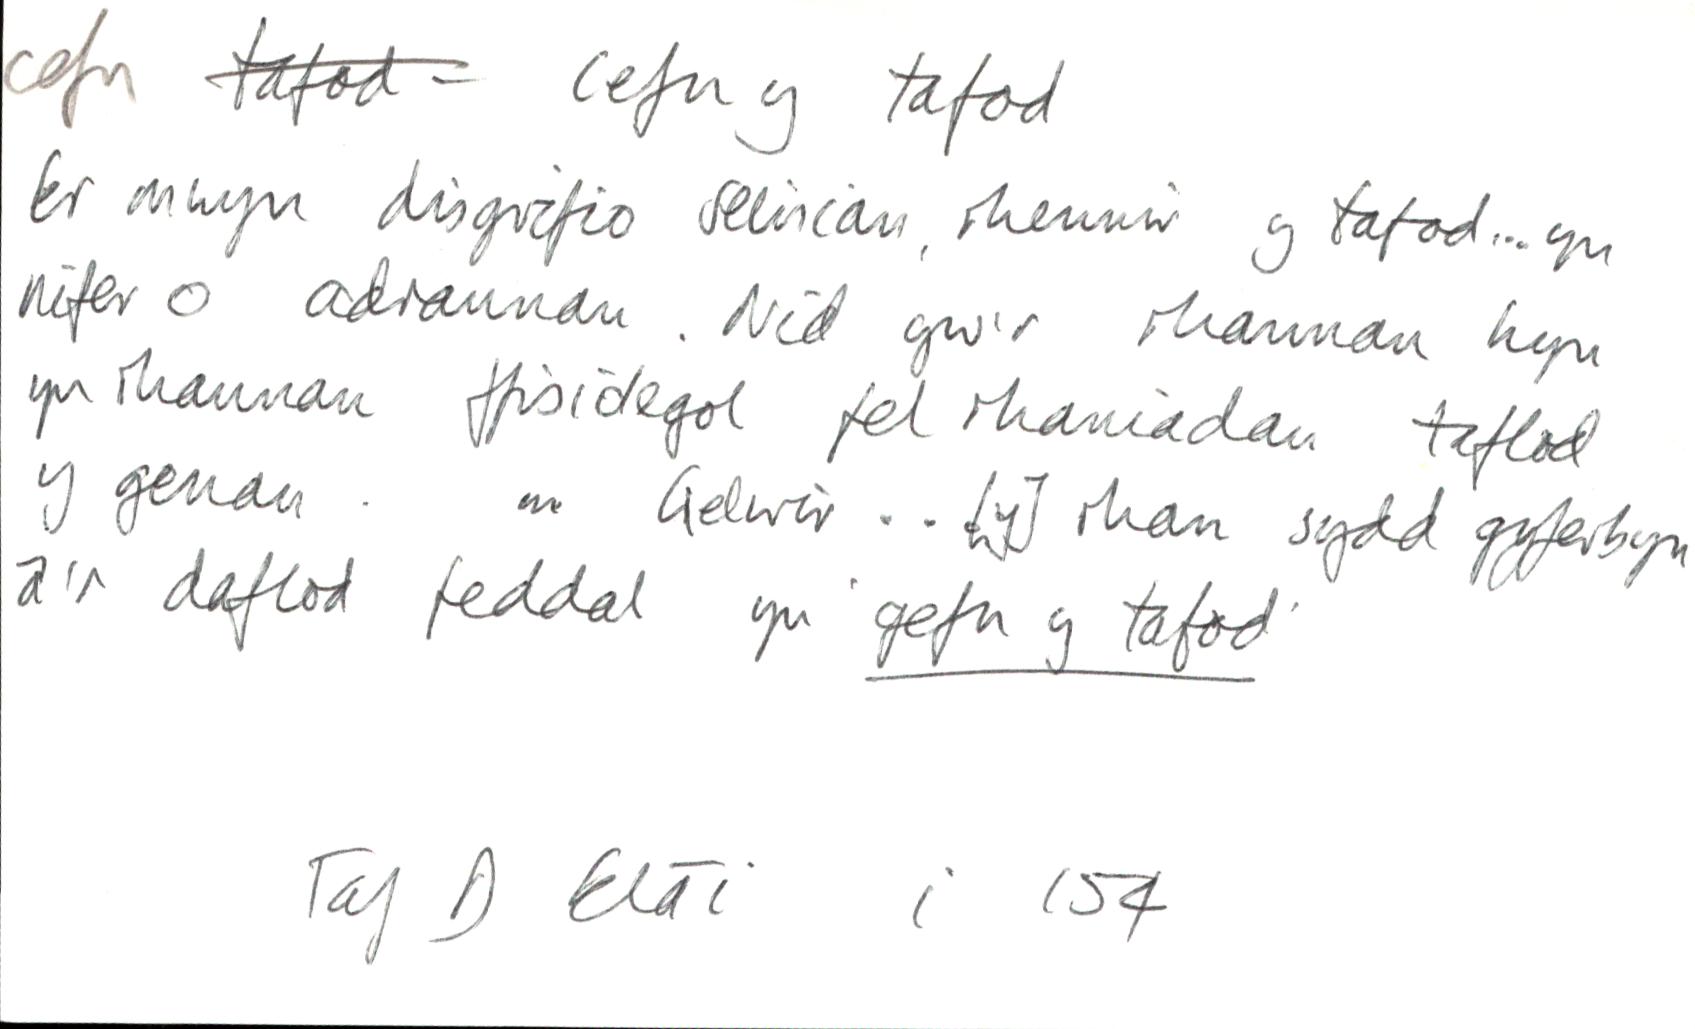 cefn tafod = cefn y tafod
Er mwyn disgrifio seiniau, rhennir y tafod... yn
nifer o adrannau. Nid yw'r rhannau hyn
yn rhannau ffisidegol fel rhaniadau taflod
y genau. ... Gelwir ... [y] rhan sydd gyferbyn
â'r daflod feddal yn 'gefn y tafod'
Taf D Elái i 154